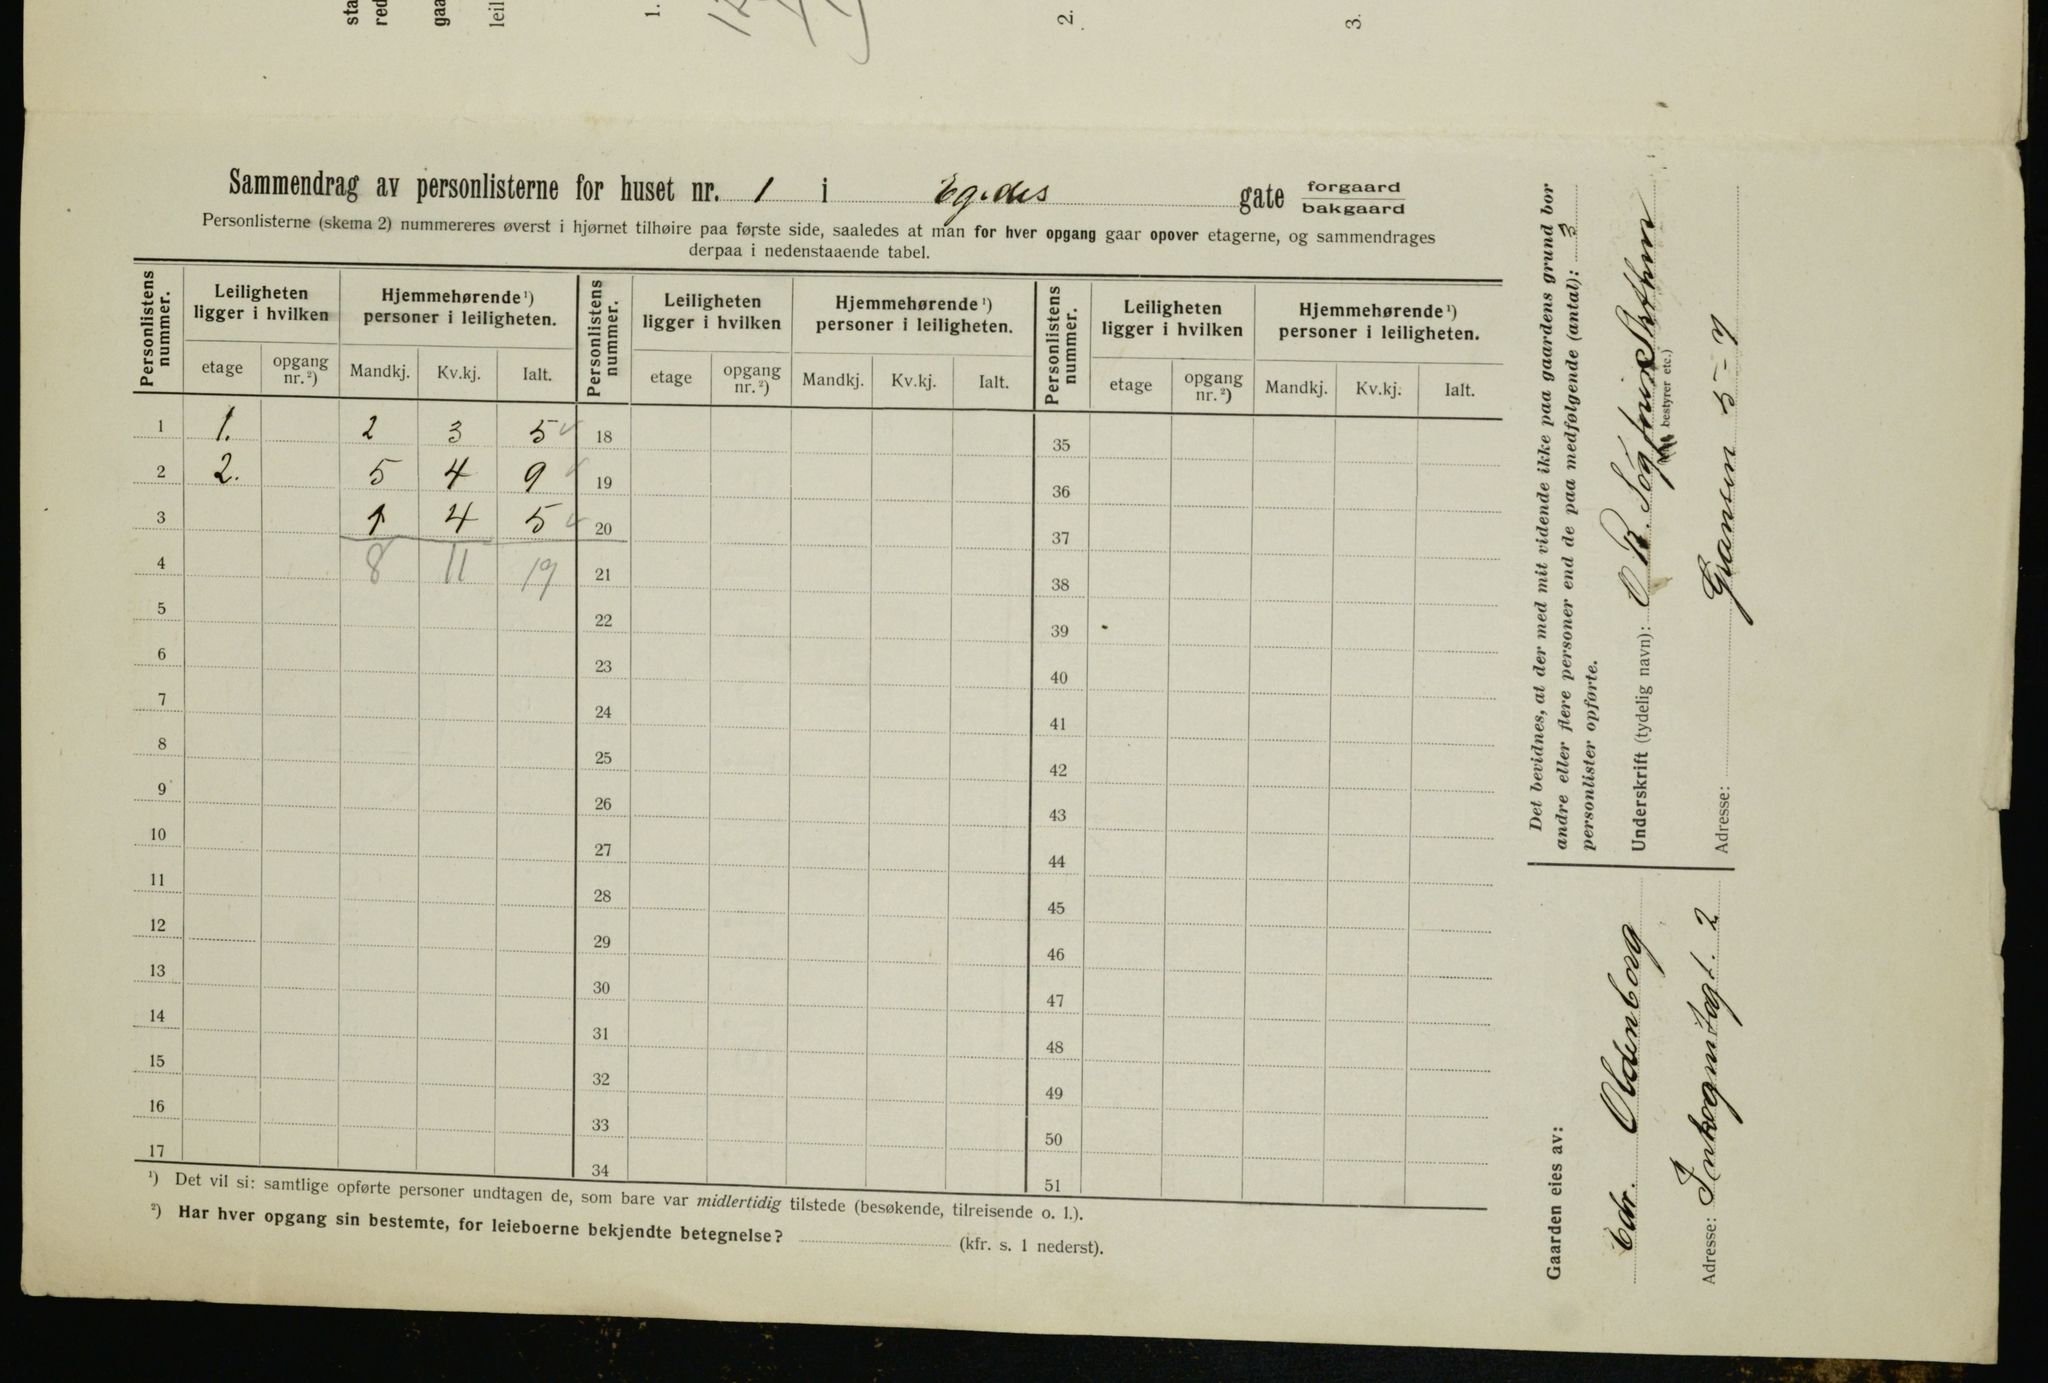 sta
red
gaa
leil
1.
2.
3.
Sammendrag av personlisterne for huset nr. 1 i Egedes gate forgaard bakgaard
Personlisterne (skema 2) nummereres øverst i hjørnet tilhøire paa første side, saaledes at man for hver opgang gaar opover etagerne, og sammendrages
derpaa i nedenstaaende tabel.
Personlistens nummer. Leiligheten ligger i hvilken Hjemmehørende ¹) personer i leiligheten. Personlistens nummer. Leiligheten ligger i hvilken Hjemmehørende ¹) personer i leiligheten. Personlistens nummer. Leiligheten ligger i hvilken Hjemmehørende ¹) personer i leiligheten.
etage opgang nr. ²) Mandkj. Kv.kj. Ialt. etage opgang nr. ²) Mandkj. Kv.kj. Ialt. etage opgang nr. ²) Mandkj. Kv.kj. Ialt.
1 1. 2 3 5 18 35
2 2. 5 4 9 19 36
3 1 4 5 20 37
4 8 11 19 21 38
5 22 39
6 23 40
7 24 41
8 25 42
9 26 43
10 27 44
11 28 45
12 29 46
13 30 47
14 31 48
15 32 49
16 33 50
17 34 51
¹) Det vil si: samtlige opførte personer undtagen de, som bare var midlertidig tilstede (besøkende, tilreisende o. l.).
²) Har hver opgang sin bestemte, for leieboerne bekjendte betegnelse? (kfr. s. 1 nederst).
Det bevidnes, at der med mit vidende ikke paa gaardens grund bor
andre eller flere personer end de paa medfølgende (antal): 3
personlister opførte.
Underskrift (tydelig navn):
bestyrer etc.)
Adresse: Gransen 5-7
Gaarden eies av:
Chr. Oldenborg
Adresse: Inkognitogt. 2